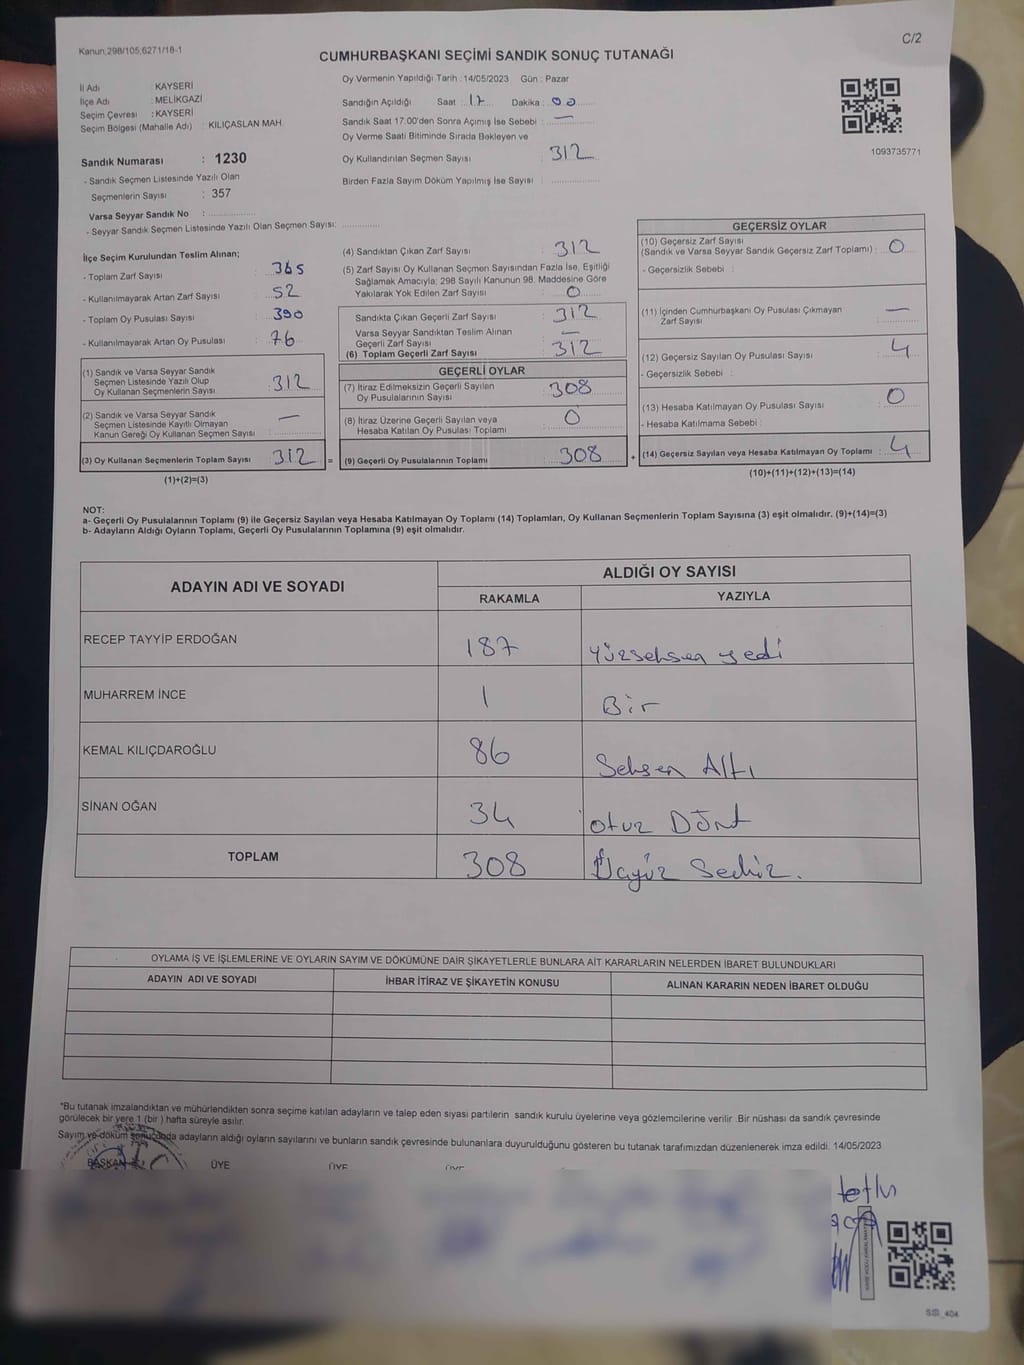 Kanun,298/105,6271/18-1
C/2
CUMHURBAŞKANI SEÇİMİ SANDIK SONUÇ TUTANAĞI
İl Adı KAYSERİ
İlçe Adı : MELİKGAZİ
Seçim Çevresi : KAYSERİ
Seçim Bölgesi (Mahalle Adı) : KILIÇASLAN MAH.
Sandık Numarası : 1230
- Sandık Seçmen Listesinde Yazılı Olan
Seçmenlerin Sayısı : 357
Varsa Seyyar Sandık No :
- Seyyar Sandık Seçmen Listesinde Yazılı Olan Seçmen Sayısı:
Oy Vermenin Yapıldığı Tarih :14/05/2023 Gün : Pazar
Sandığın Açıldığı Saat : 17 Dakika : 00
Sandık Saat 17:00'den Sonra Açımış İse Sebebi : —
Oy Verme Saati Bitiminde Sırada Bekleyen ve
Oy Kullandırılan Seçmen Sayısı : 312
Birden Fazla Sayım Döküm Yapılmış İse Sayısı :
1093735771
İlçe Seçim Kurulundan Teslim Alınan;
- Toplam Zarf Sayısı : 365
- Kullanılmayarak Artan Zarf Sayısı : 52
- Toplam Oy Pusulası Sayısı : 390
- Kullanılmayarak Artan Oy Pusulası : 76
(1) Sandık ve Varsa Seyyar Sandık
Seçmen Listesinde Yazılı Olup
Oy Kullanan Seçmenlerin Sayısı : 312
(2) Sandık ve Varsa Seyyar Sandık
Seçmen Listesinde Kayıtlı Olmayan
Kanun Gereği Oy Kullanan Seçmen Sayısı : —
(3) Oy Kullanan Seçmenlerin Toplam Sayısı : 312 =
(1)+(2)=(3)
(4) Sandıktan Çıkan Zarf Sayısı : 312
(5) Zarf Sayısı Oy Kullanan Seçmen Sayısından Fazla İse, Eşitliği
Sağlamak Amacıyla; 298 Sayılı Kanunun 98. Maddesine Göre
Yakılarak Yok Edilen Zarf Sayısı : 0
Sandıkta Çıkan Geçerli Zarf Sayısı : 312
Varsa Seyyar Sandıktan Teslim Alınan
Geçerli Zarf Sayısı : —
(6) Toplam Geçerli Zarf Sayısı : 312
GEÇERLİ OYLAR
(7) İtiraz Edilmeksizin Geçerli Sayılan
Oy Pusulalarının Sayısı : 308
(8) İtiraz Üzerine Geçerli Sayılan veya
Hesaba Katılan Oy Pusulası Toplamı : 0
(9) Geçerli Oy Pusulalarının Toplamı : 308 +
GEÇERSİZ OYLAR
(10) Geçersiz Zarf Sayısı
(Sandık ve Varsa Seyyar Sandık Geçersiz Zarf Toplamı) : 0
- Geçersizlik Sebebi :
(11) İçinden Cumhurbaşkanı Oy Pusulası Çıkmayan
Zarf Sayısı : —
(12) Geçersiz Sayılan Oy Pusulası Sayısı : 4
- Geçersizlik Sebebi :
(13) Hesaba Katılmayan Oy Pusulası Sayısı : 0
- Hesaba Katılmama Sebebi :
(14) Geçersiz Sayılan veya Hesaba Katılmayan Oy Toplamı : 4
(10)+(11)+(12)+(13)=(14)
NOT:
a- Geçerli Oy Pusulalarının Toplamı (9) ile Geçersiz Sayılan veya Hesaba Katılmayan Oy Toplamı (14) Toplamları, Oy Kullanan Seçmenlerin Toplam Sayısına (3) eşit olmalıdır. (9)+(14)=(3)
b- Adayların Aldığı Oyların Toplamı, Geçerli Oy Pusulalarının Toplamına (9) eşit olmalıdır.
ADAYIN ADI VE SOYADI ALDIĞI OY SAYISI
RAKAMLA YAZIYLA
RECEP TAYYİP ERDOĞAN 187 Yüzseksen yedi
MUHARREM İNCE 1 Bir
KEMAL KILIÇDAROĞLU 86 Seksen Altı
SİNAN OĞAN 34 Otuz Dört
TOPLAM 308 Üçyüz Sekiz.
OYLAMA İŞ VE İŞLEMLERİNE VE OYLARIN SAYIM VE DÖKÜMÜNE DAİR ŞİKAYETLERLE BUNLARA AİT KARARLARIN NELERDEN İBARET BULUNDUKLARI
ADAYIN ADI VE SOYADI İHBAR İTİRAZ VE ŞİKAYETİN KONUSU ALINAN KARARIN NEDEN İBARET OLDUĞU
*Bu tutanak imzalandıktan ve mühürlendikten sonra seçime katılan adayların ve talep eden siyasi partilerin sandık kurulu üyelerine veya gözlemcilerine verilir .Bir nüshası da sandık çevresinde
görülecek bir yere 1 (bir ) hafta süreyle asılır.
Sayım ve döküm sonucunda adayların aldığı oyların sayılarını ve bunların sandık çevresinde bulunanlara duyurulduğunu gösteren bu tutanak tarafımızdan düzenlenerek imza edildi. 14/05/2023
BAŞKAN ÜYE ÜYE ÜYE
SSB_404